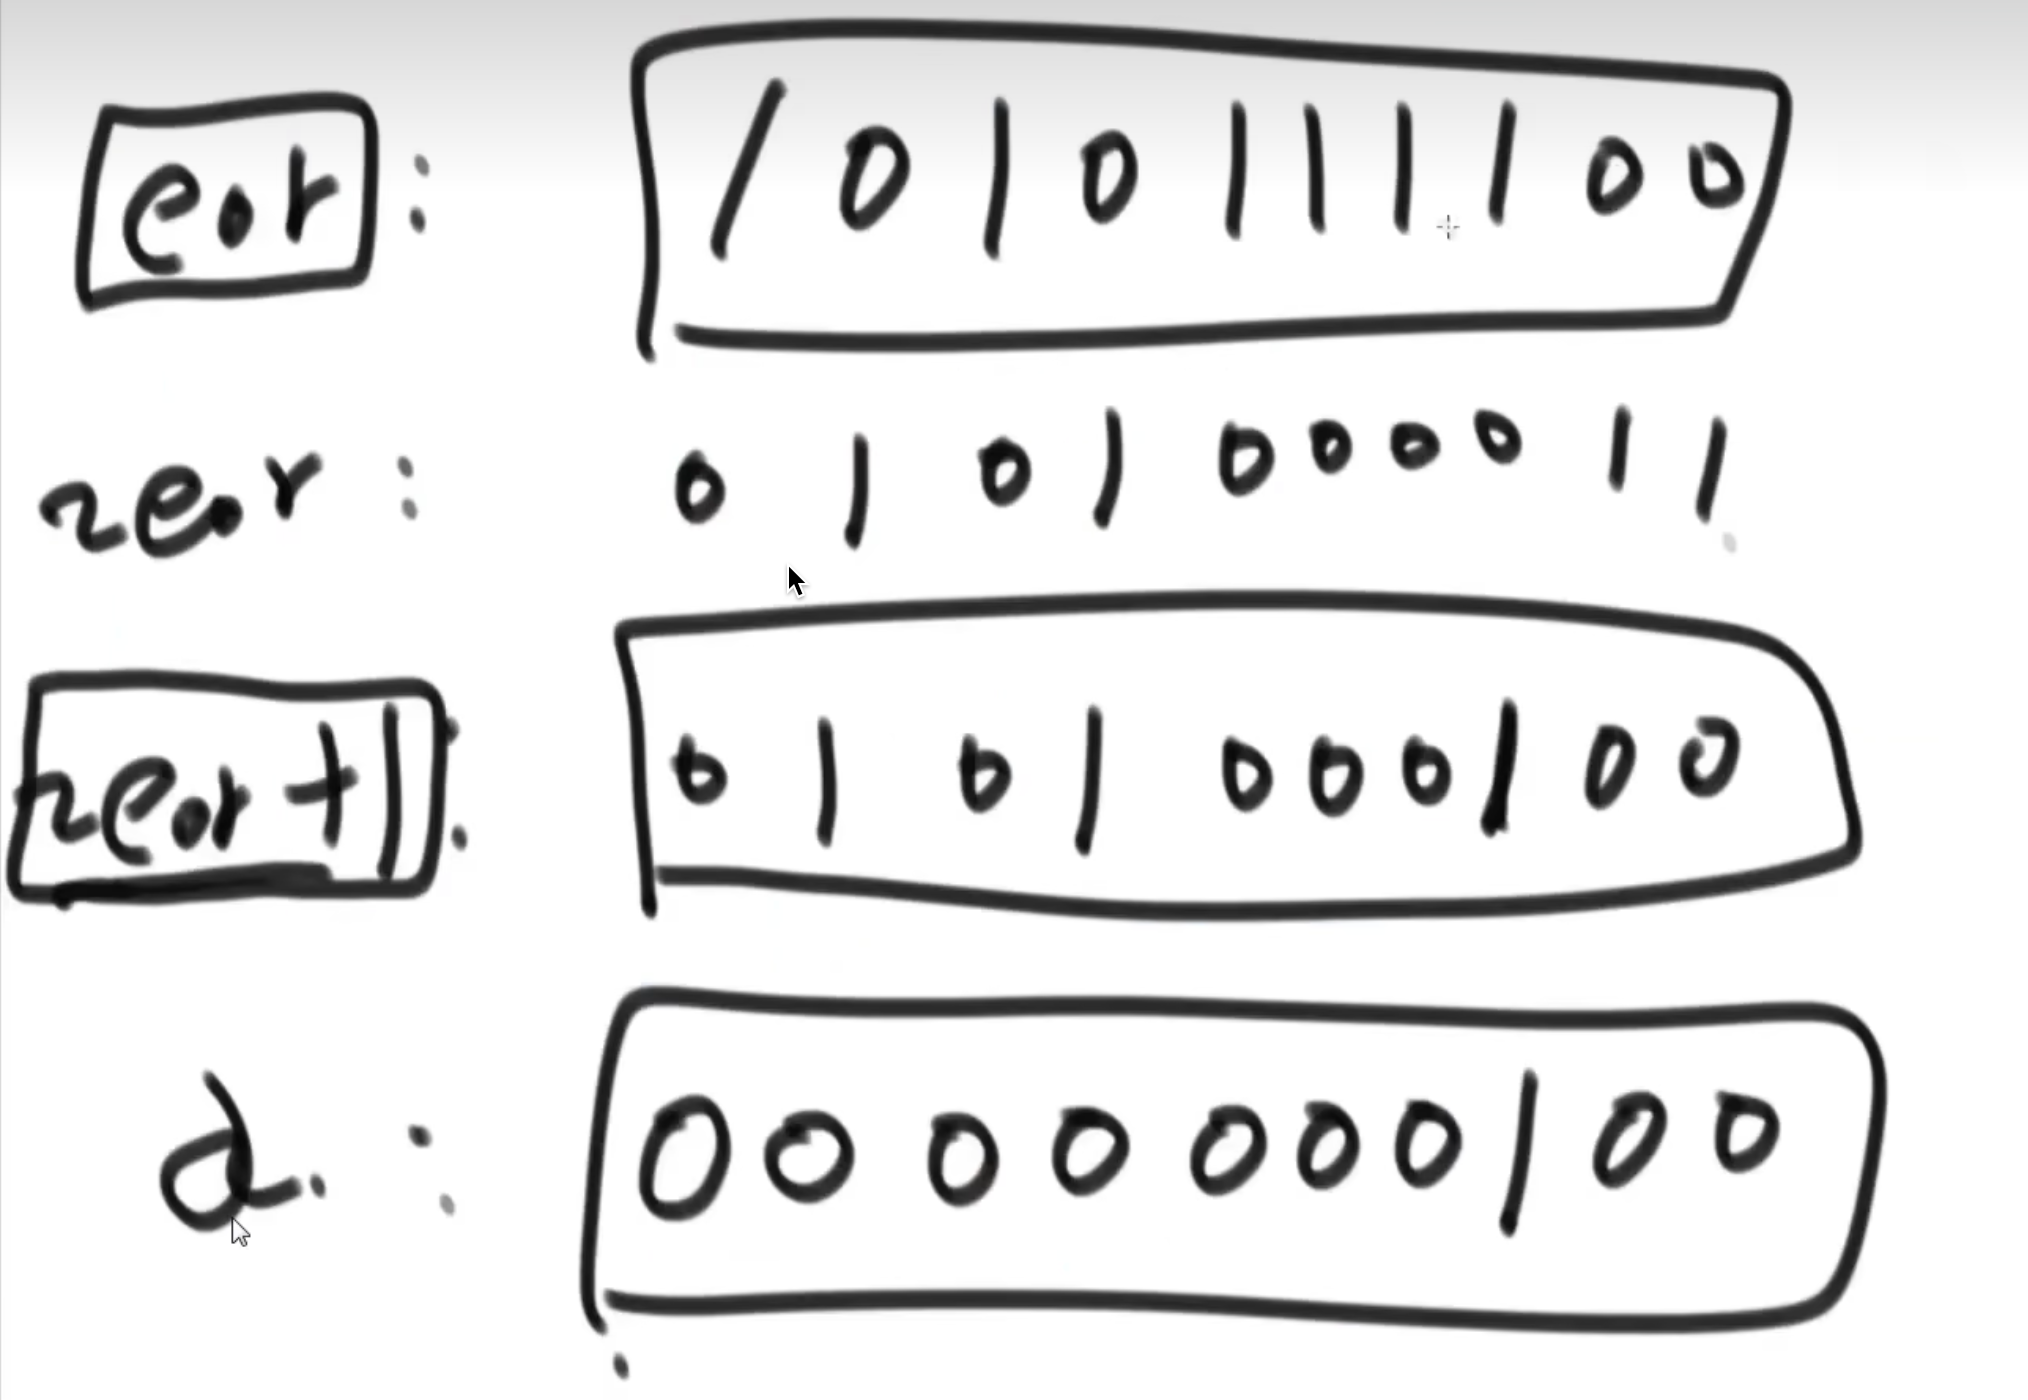 eor : 1010111100
~eor : 0101000011
~eor+1 : 0101000100
a. : 0000000100